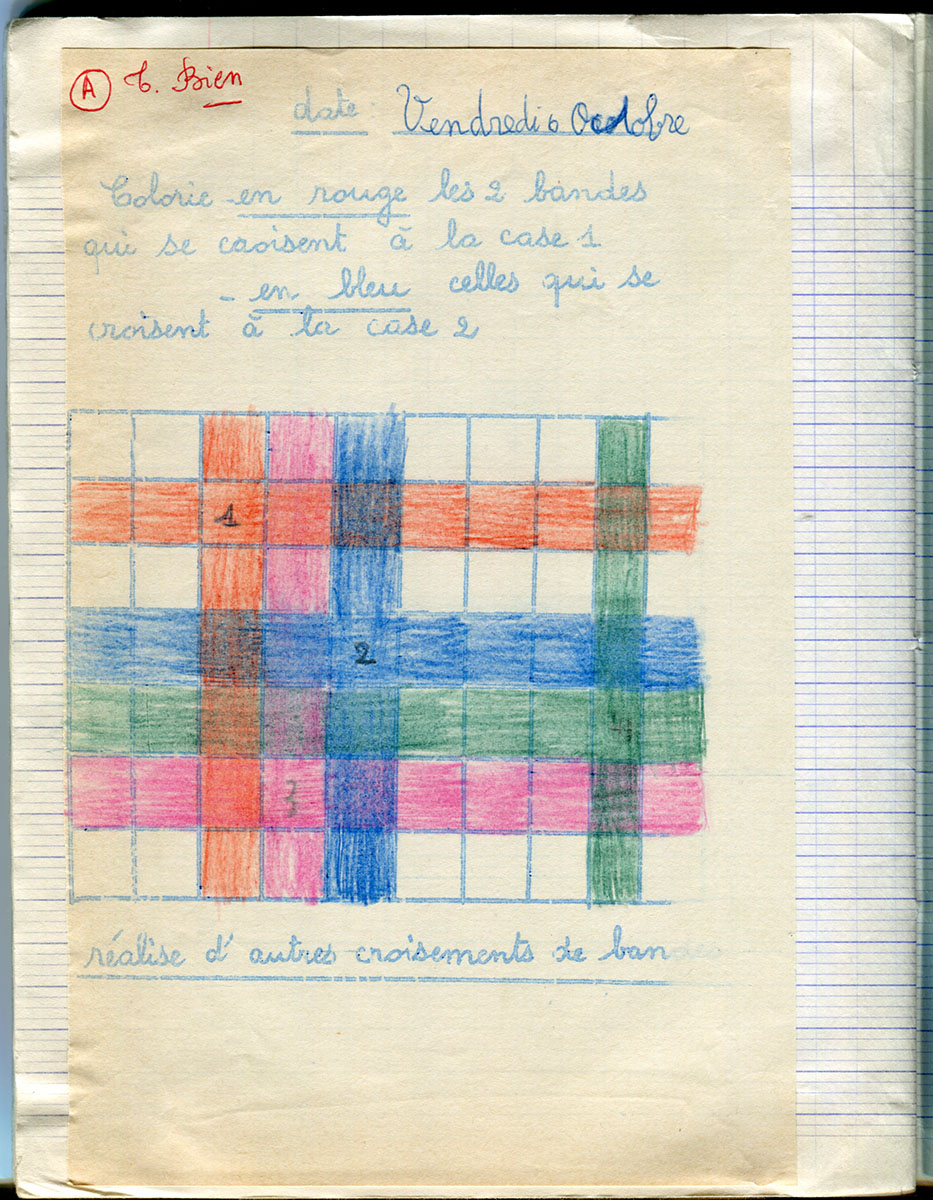 A T. Bien
date Vendredi 6 Octobre
Colorie - en rouge les 2 bandes
qui se caoisent à la case 1
- en bleu celles qui se
croisent à la case 2
1
2
4
3
réalise d'autres croisements de bandes